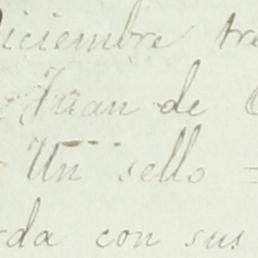 Diciembre tre
Juan de
Un sello =
rda con sus